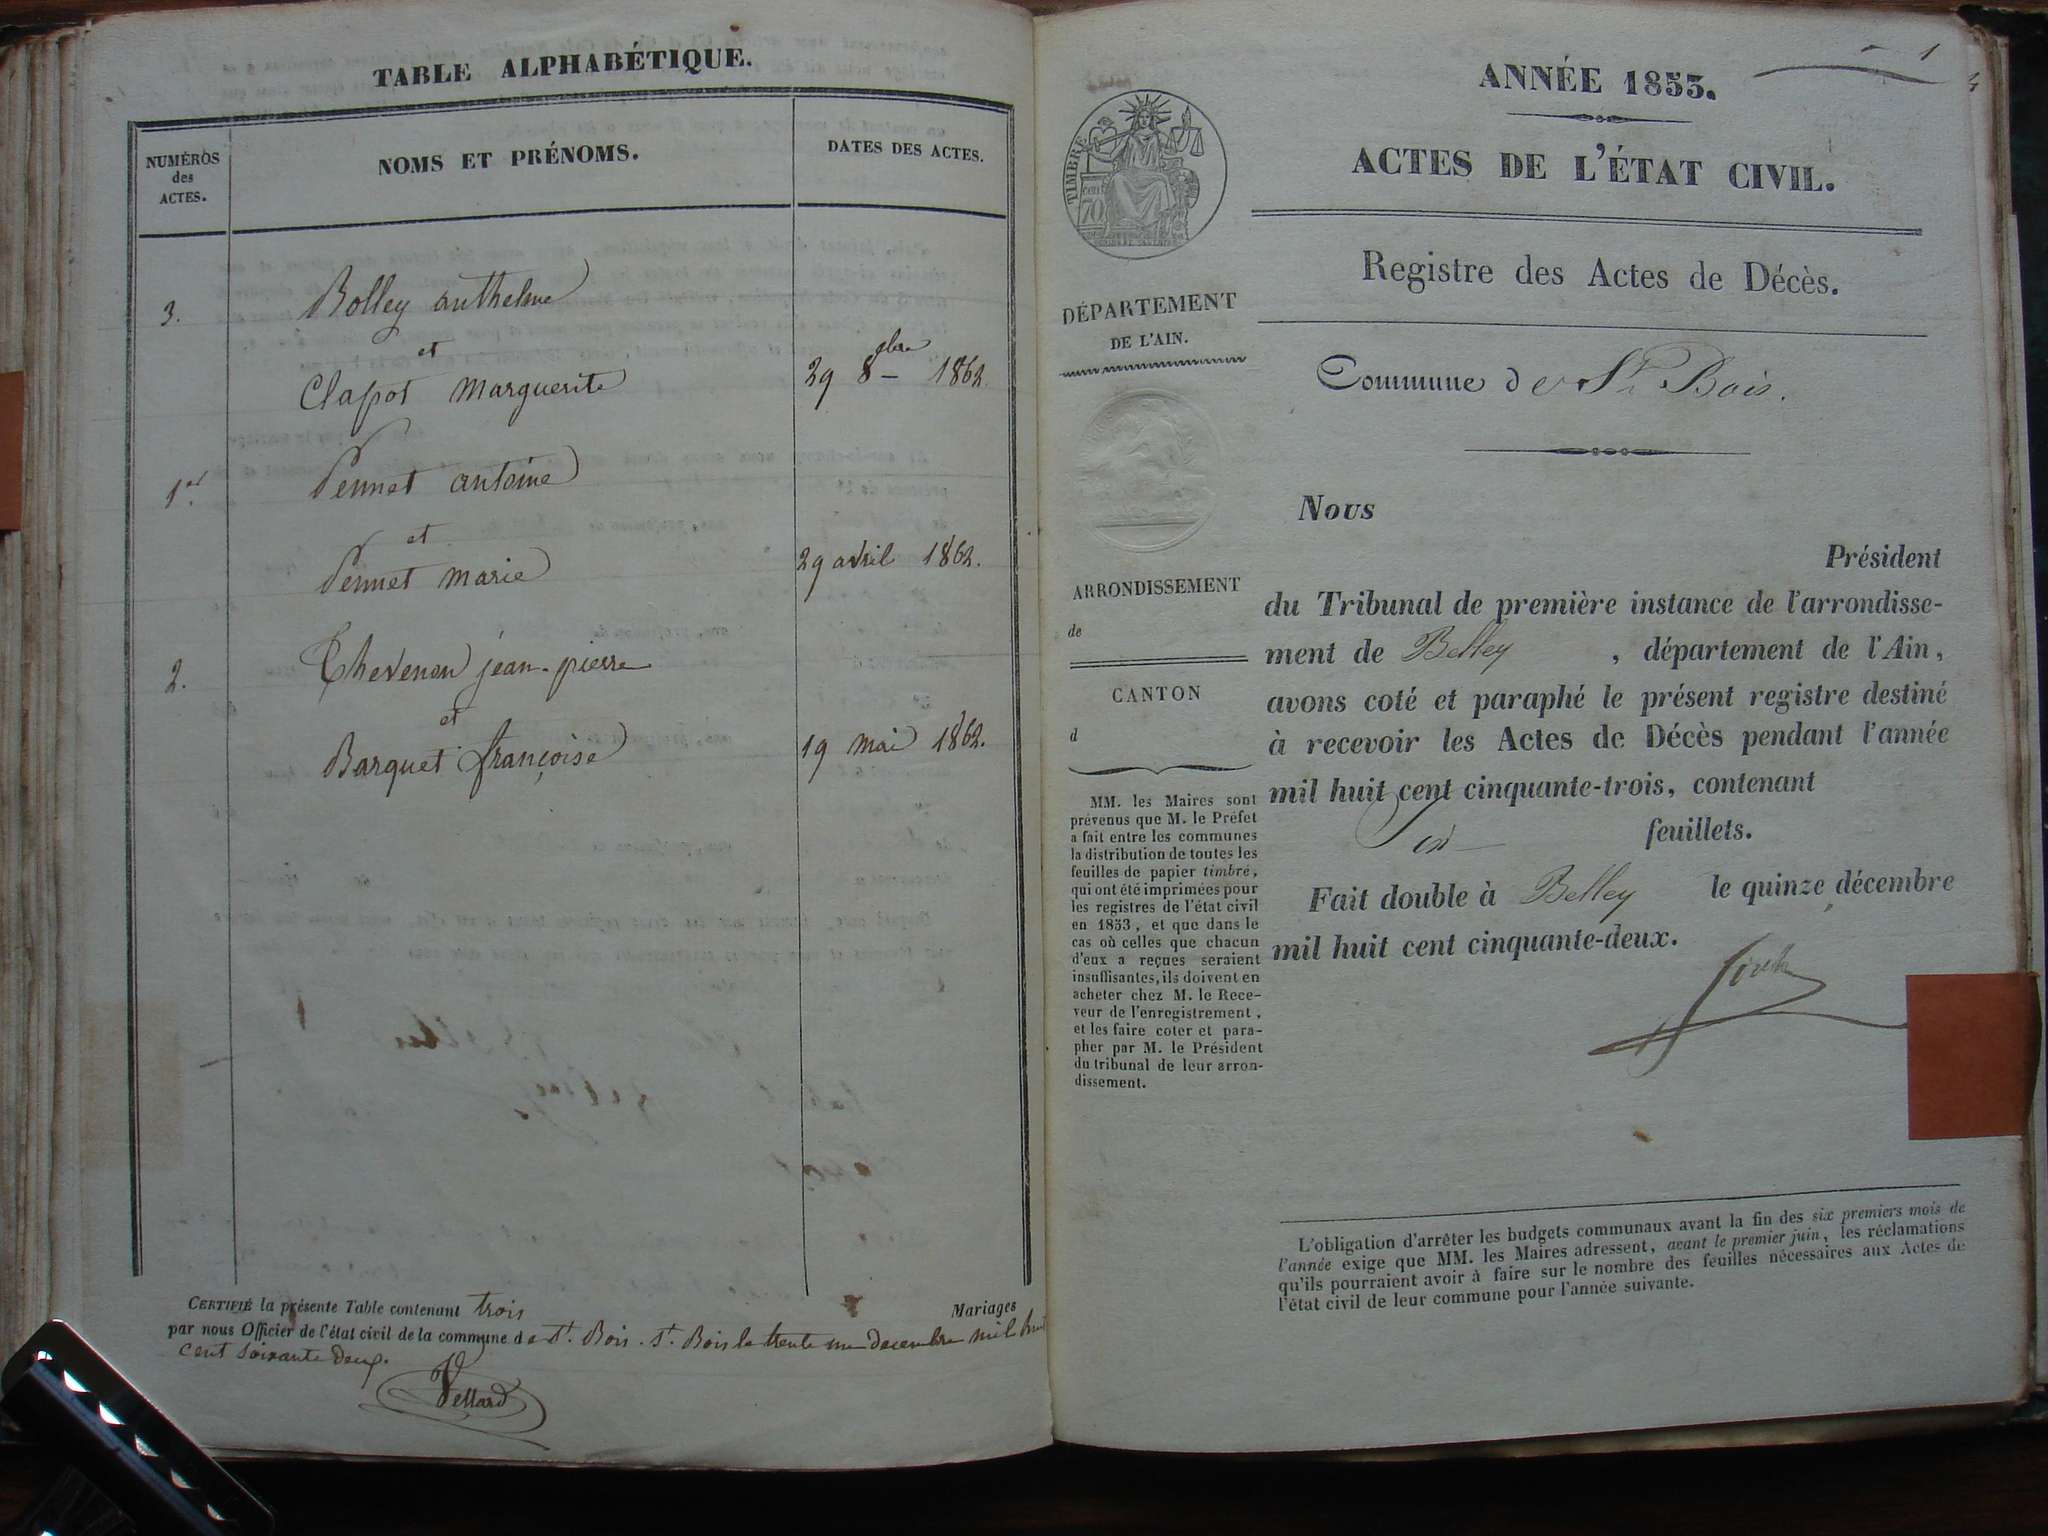 TABLE ALPHABÉTIQUE.
NUMÉROS
des
ACTES.
NOMS ET PRÉNOMS.
DATES DES ACTES.
3.
Bolley anthelme
et
Clapot Marguerite
29 8bre 1862.
1er.
Pennet antoine
et
Pennet marie
29 avril 1862.
2.
Thevenon jean-pierre
et
Barquet françoise
19 mai 1862.
CERTIFIÉ la présente Table contenant trois Mariages
par nous Officier de l'état civil de la commune de St. Bois. St. Bois le trente un decembre mil huit
cent soixante deux.
Pellard
1
ANNÉE 1853.
ACTES DE L'ÉTAT CIVIL.
Registre des Actes de Décès.
Commune de St Bois.
TIMBRE
70
DÉPARTEMENT
DE L'AIN.
ARRONDISSEMENT
de
CANTON
d
MM. les Maires sont
prévenus que M. le Préfet
a fait entre les communes
la distribution de toutes les
feuilles de papier timbré,
qui ont été imprimées pour
les registres de l'état civil
en 1853, et que dans le
cas où celles que chacun
d'eux a reçues seraient
insuffisantes, ils doivent en
acheter chez M. le Rece-
veur de l'enregistrement,
et les faire coter et para-
pher par M. le Président
du tribunal de leur arron-
dissement.
Nous
Président
du Tribunal de première instance de l'arrondisse-
ment de Belley , département de l'Ain,
avons coté et paraphé le présent registre destiné
à recevoir les Actes de Décès pendant l'année
mil huit cent cinquante-trois, contenant
feuillets.
Fait double à Belley le quinze décembre
mil huit cent cinquante-deux.
L'obligation d'arrêter les budgets communaux avant la fin des six premiers mois de
l'année exige que MM. les Maires adressent, avant le premier juin, les réclamations
qu'ils pourraient avoir à faire sur le nombre des feuilles nécessaires aux Actes de
l'état civil de leur commune pour l'année suivante.